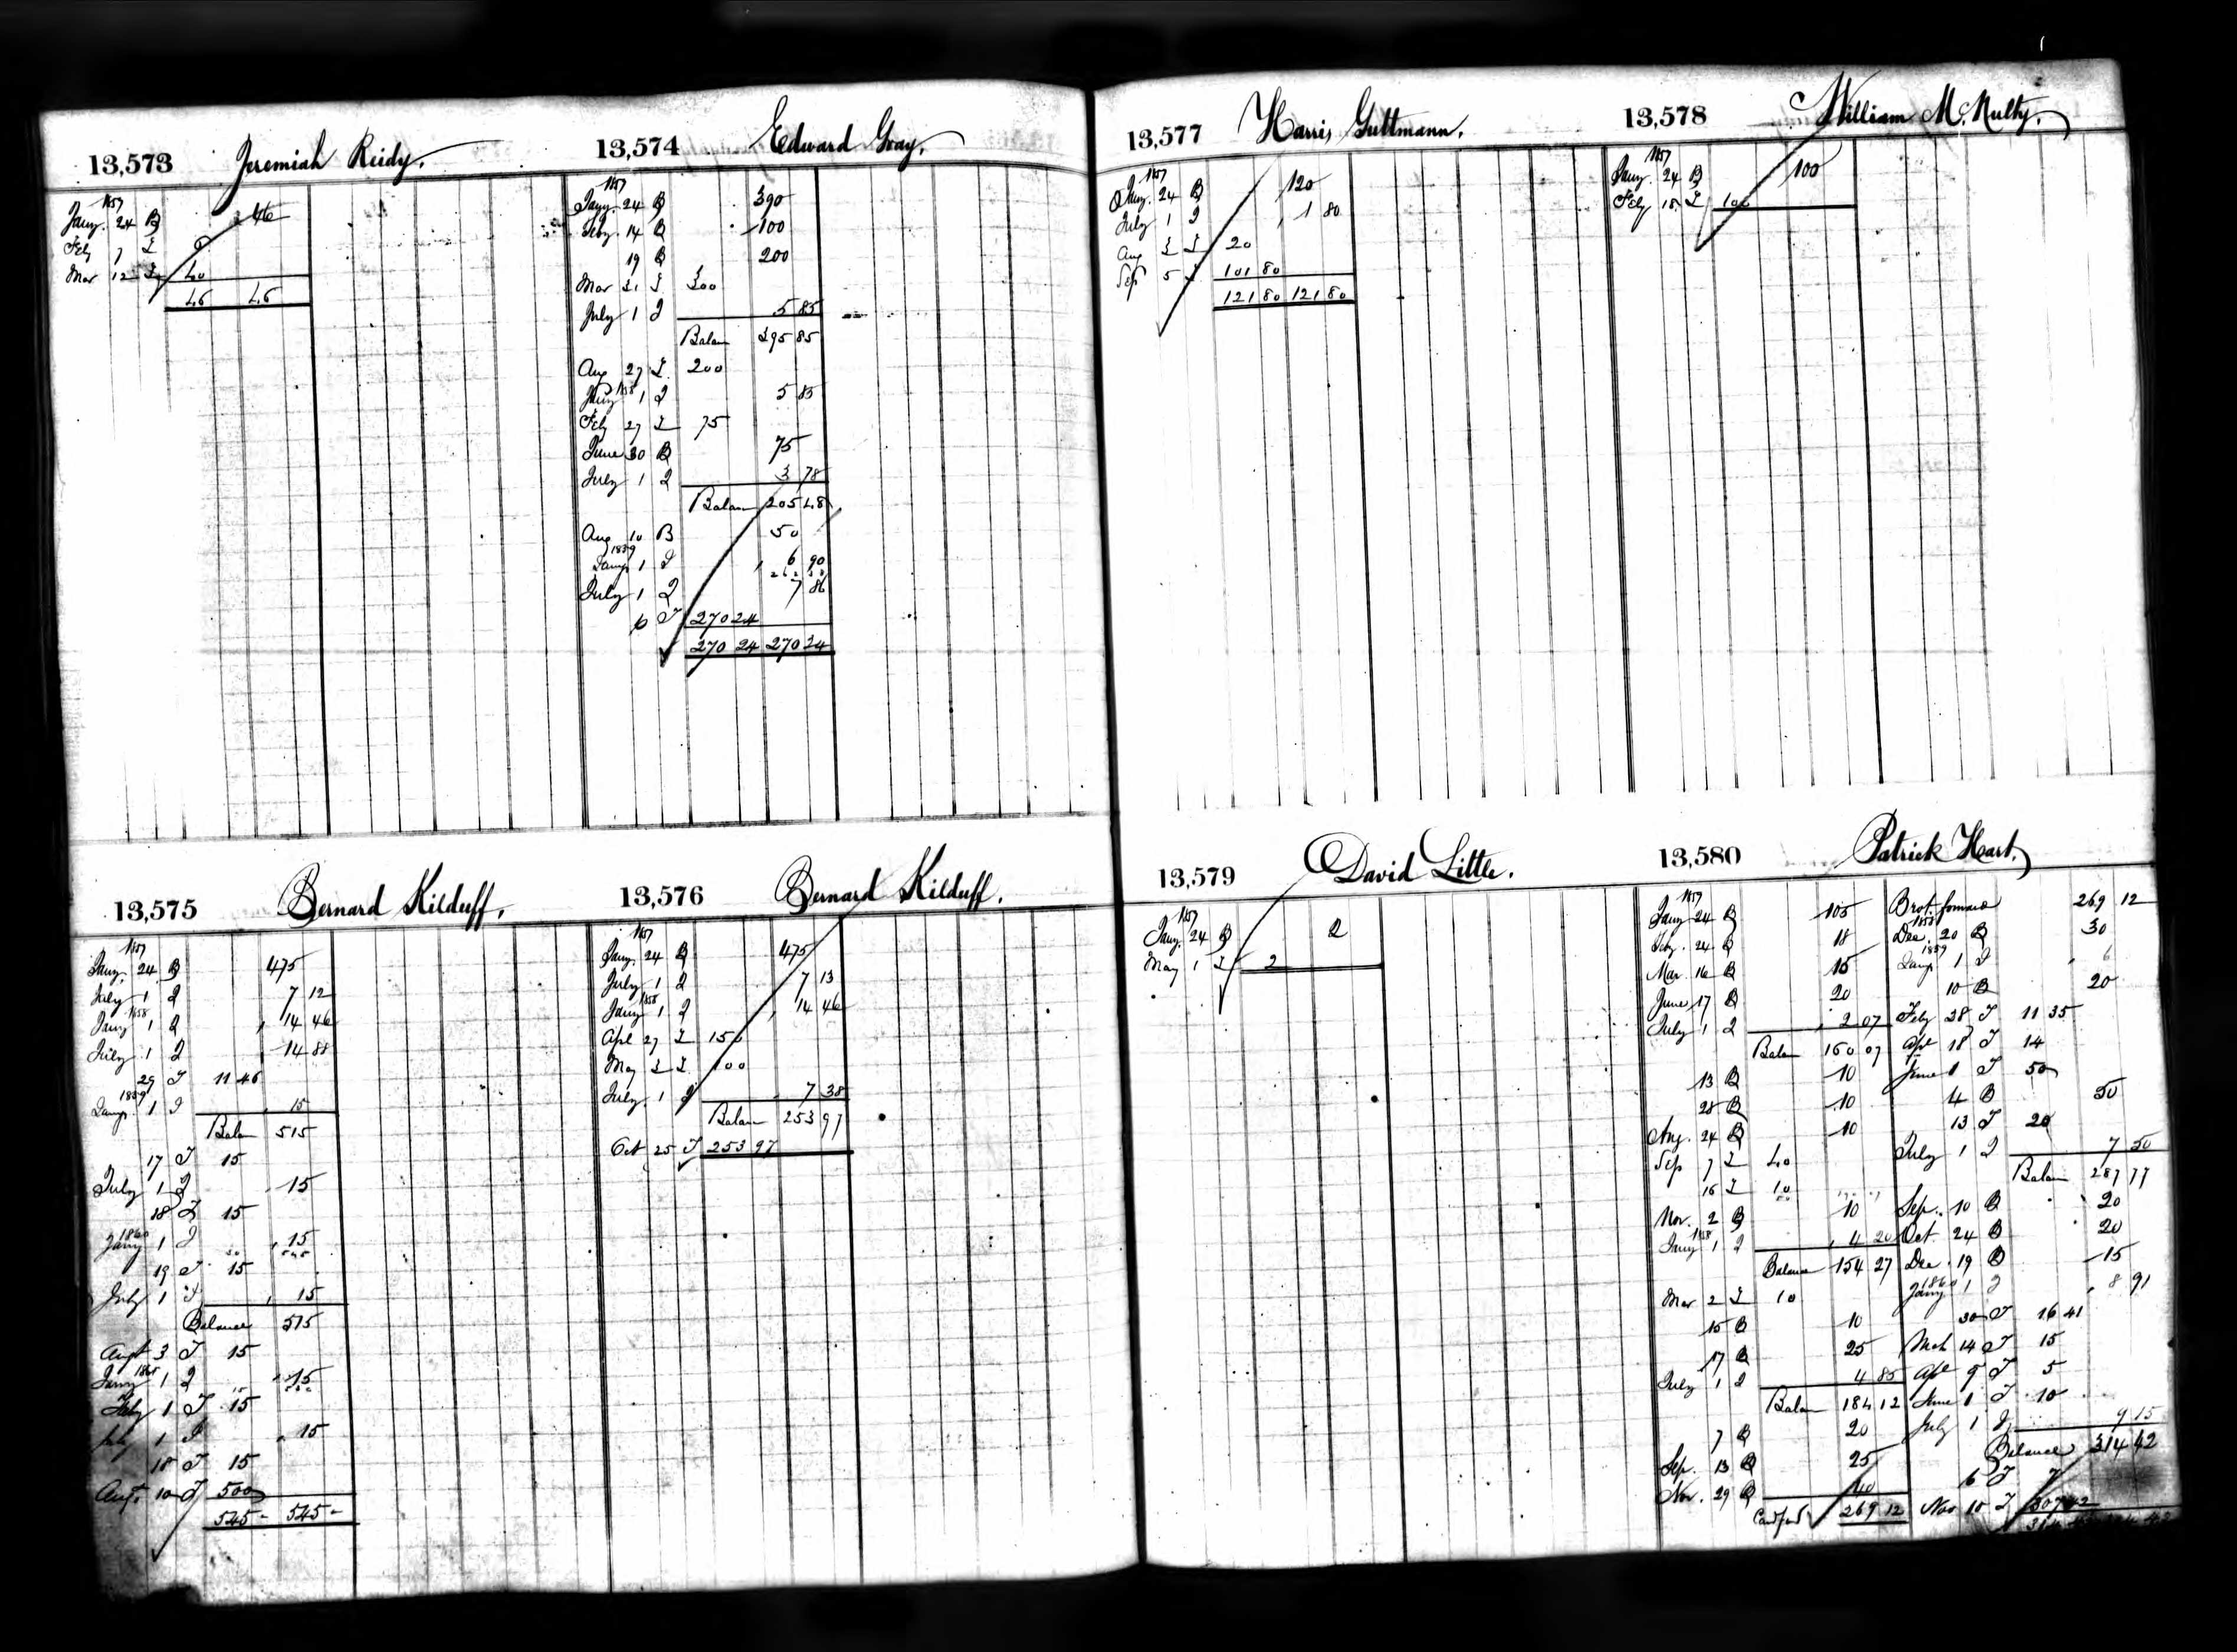 13,573 Jeremiah Reidy.
1857
Jany. 24 B 46
Feb 7 I 6
Mar 12 I 40
46 46
13,574 Edward Gray.
1857
Jany. 24 B 390
Feby. 14 B 100
19 B 200
Mar 31 I 300
July 1 I 5 85
Balan 395 85
Aug 27 I 200
1858
Jany 1 I 5 85
Feb 27 I 75
June 30 B 75
July 1 I 3 78
Balan 205 48
Aug 10 B 50
1859
Jany 1 I 6 90
July 1 I 7 86
6 I 270 24
270 24 270 24
13,575 Bernard Kilduff.
1857
Jany. 24 B 475
July 1 I 7 12
1858
Jany 1 I 14 46
July 1 I 14 88
29 I 11 46
1859
Jany 1 I 15
Balan 515
17 I 15
July 1 I 15
18 I 15
1860
Jany 1 I 15
19 I 15
July 1 I 15
Balance 515
Augt 3 I 15
Jany 1 I 15
Feby 1 I 15
July 1 I 15
18 I 15
Augt. 10 I 500
545 - 545 -
13,576 Bernard Kilduff.
1857
Jany. 24 B 475
July 1 I 7 13
1858
Jany 1 I 14 46
Apl 27 I 150
May I 100
July 1 I 7 38
Balan 253 97
Oct 25 I 253 97
13,577 Harris Guttmann.
1857
Jany. 24 B 120
July 1 I 1 80
Aug 3 I 20
Sep 5 I 101 80
121 80 121 80
13,578 William McNulty.
1857
Jany. 24 B 100
Feby 18 I 100
13,579 David Little.
1857
Jany. 24 B 2
May 1 I 2
13,580 Patrick Hart.
1857
Jany 24 B 105
Feby. 24 B 18
Mar. 16 B 15
June 17 B 20
July 1 I 2 07
Balan 160 07
13 B 10
28 B 10
Aug. 24 B 10
Sep 7 I 40
16 I 10
Nov. 2 B 10
1858
Jany 1 I 4 20
Balance 154 27
Mar 2 I 10
15 B 10
17 B 25
July 1 I 4 85
Balan 184 12
7 B 20
Sep. 13 B 25
Nov. 29 B 40
Card ford 269 12
Brot. forward 269 12
1858
Dec. 20 B 30
1859
Jany 1 I 6
10 B 20
Feby 28 I 11 35
Apl 18 I 14
June 1 I 50
4 B 50
13 I 20
July 1 I 7 50
Balan 287 77
Sep. 10 B 20
Oct 24 B 20
Dec. 19 B 15
1860
Jany 1 I 8 91
30 I 16 41
Mch 14 I 15
Apl 9 I 5
June 1 I 10
July 1 I 9 15
Balance 314 42
6 I 7
Nov 10 I 307 42